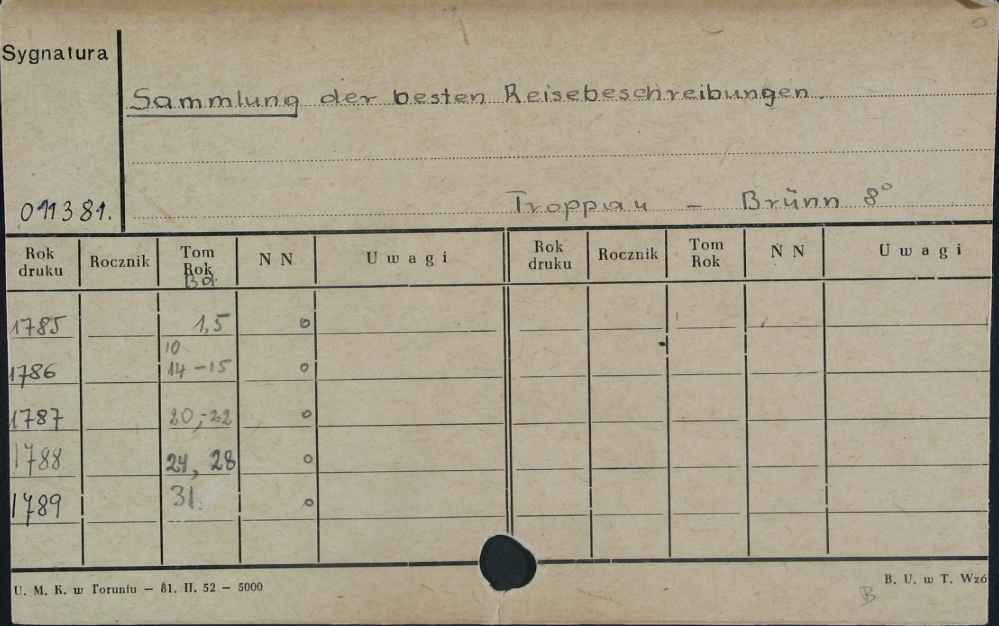 Sygnatura
Sammlung der besten Reisebeschreibungen.
011381.
Troppau – Brünn 8°
Rok druku Rocznik Tom Rok Bd. N N Uwagi Rok druku Rocznik Tom Rok N N Uwagi
1785 1,5 o
10
1786 14-15 o
1787 20,-22 o
1788 24, 28 o
1789 31. o
U. M. K. w Toruniu – 81. II. 52 – 5000
B. U. w T. Wzó
B